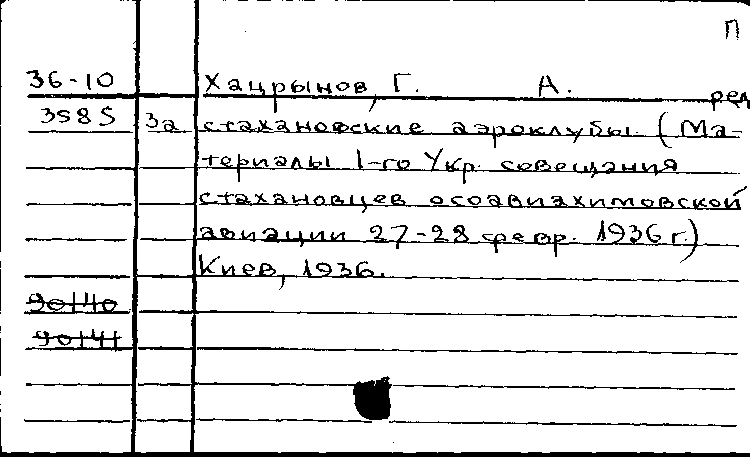 П
36-10 Хацрынов, Г. А. ред
3585 За стахановские аэроклубы. (Ма-
териалы 1-го Укр. совещания
стахановцев осоавиахимовской
авиации 27-28 февр. 1936 г.)
Киев, 1936.
90140
90141